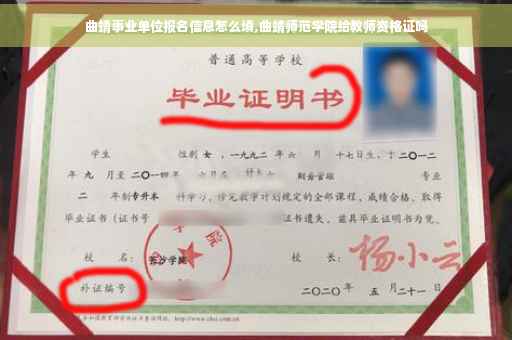 曲靖事业单位报名信息怎么填,曲靖师范学院给教师资格证吗
普通高等学校
毕业证明书
学生 性别 女 ,一九九二 年 六 月 十七日生，于 二〇一二
年 九 月至 二〇一四 年 六月在 财务管理 专业
二 年制 专升本 科学习，修完教学计划规定的全部课程，成绩合格，取得
毕业证书（证书号 证书遗失，兹具毕业证明书为凭。
校 名： 长沙学院 校 长： 杨小云
补证编号
二〇二〇年 五 月二十一日
http://www.chsi.com.cn